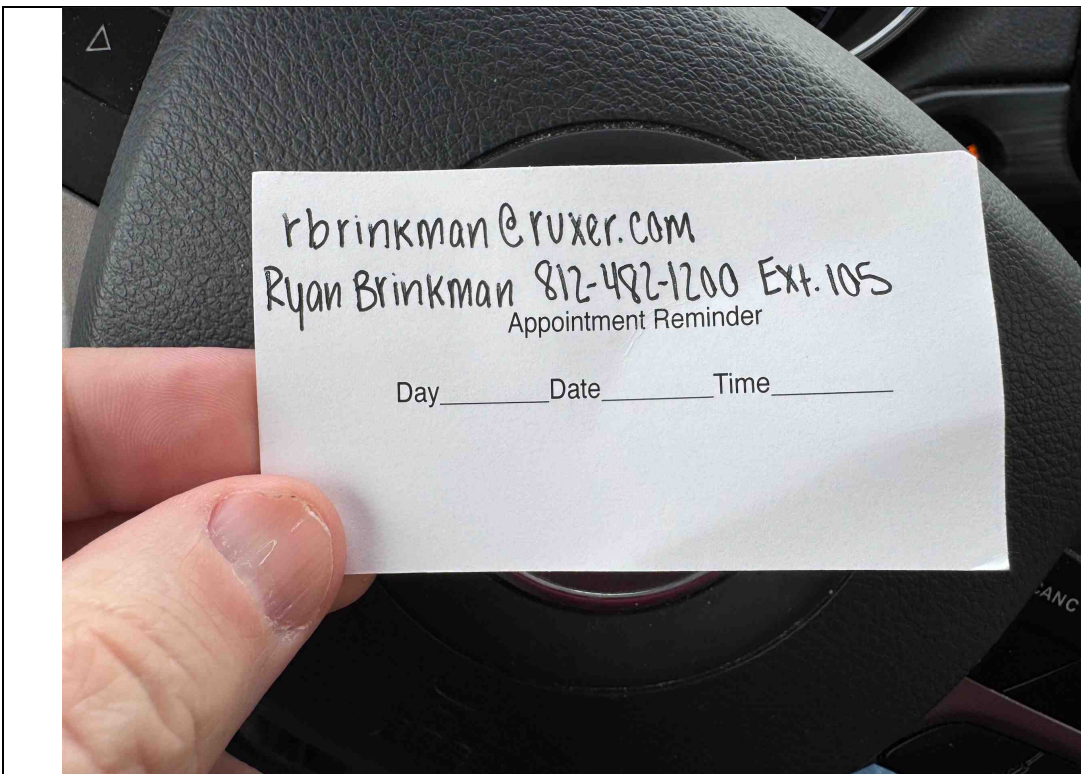 rbrinkman@ruxer.com
Ryan Brinkman 812-482-1200 Ext. 105
Appointment Reminder
Day________Date________Time_________
CANC